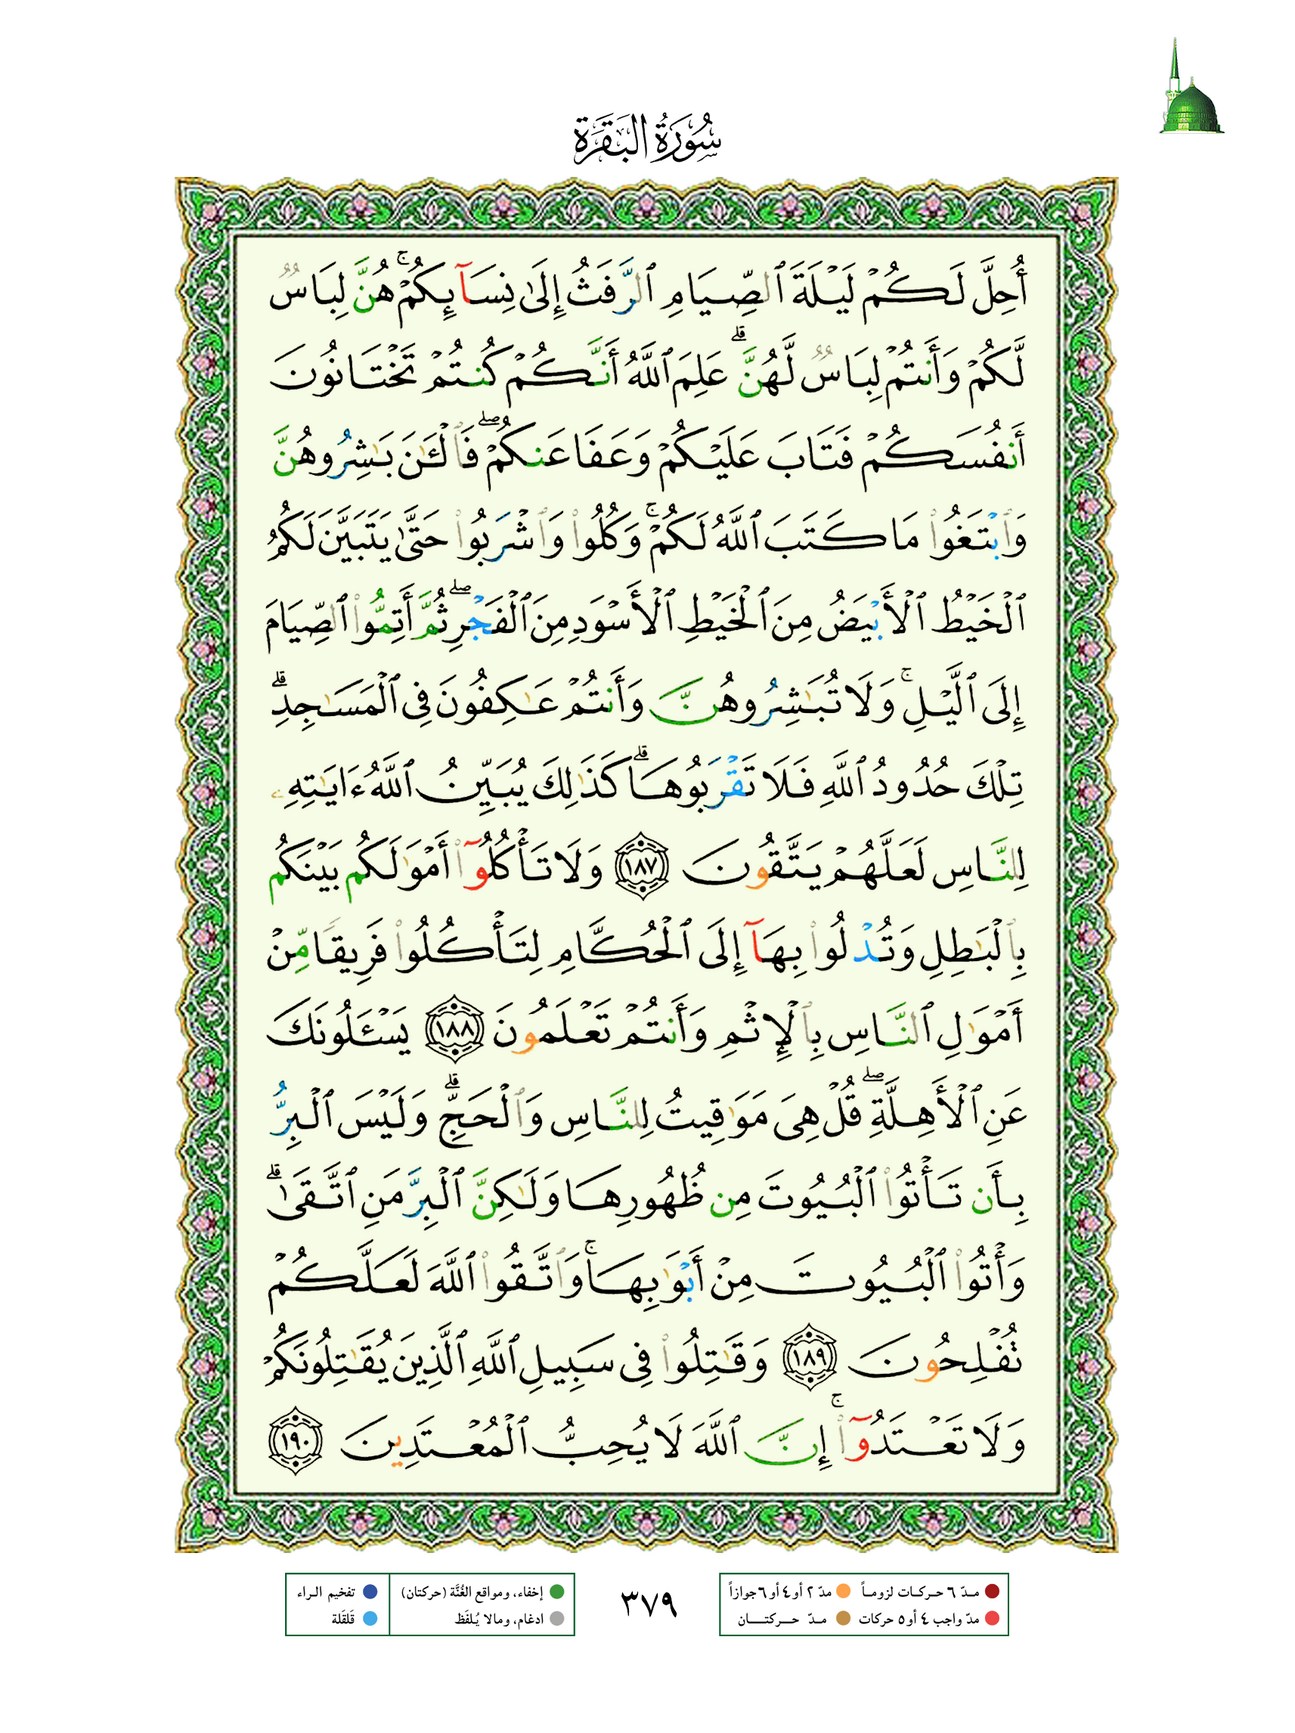 سُورَةُ البَقَرَة
أُحِلَّ لَكُمۡ لَيۡلَةَ ٱلصِّيَامِ ٱلرَّفَثُ إِلَىٰ نِسَآئِكُمۡۚ هُنَّ لِبَاسٞ
لَّكُمۡ وَأَنتُمۡ لِبَاسٞ لَّهُنَّۗ عَلِمَ ٱللَّهُ أَنَّكُمۡ كُنتُمۡ تَخۡتَانُونَ
أَنفُسَكُمۡ فَتَابَ عَلَيۡكُمۡ وَعَفَا عَنكُمۡۖ فَٱلۡـَٰٔنَ بَٰشِرُوهُنَّ
وَٱبۡتَغُواْ مَا كَتَبَ ٱللَّهُ لَكُمۡۚ وَكُلُواْ وَٱشۡرَبُواْ حَتَّىٰ يَتَبَيَّنَ لَكُمُ
ٱلۡخَيۡطُ ٱلۡأَبۡيَضُ مِنَ ٱلۡخَيۡطِ ٱلۡأَسۡوَدِ مِنَ ٱلۡفَجۡرِۖ ثُمَّ أَتِمُّواْ ٱلصِّيَامَ
إِلَى ٱلَّيۡلِۚ وَلَا تُبَٰشِرُوهُنَّ وَأَنتُمۡ عَٰكِفُونَ فِي ٱلۡمَسَٰجِدِۗ
تِلۡكَ حُدُودُ ٱللَّهِ فَلَا تَقۡرَبُوهَاۗ كَذَٰلِكَ يُبَيِّنُ ٱللَّهُ ءَايَٰتِهِۦ
لِلنَّاسِ لَعَلَّهُمۡ يَتَّقُونَ ١٨٧ وَلَا تَأۡكُلُوٓاْ أَمۡوَٰلَكُم بَيۡنَكُم
بِٱلۡبَٰطِلِ وَتُدۡلُواْ بِهَآ إِلَى ٱلۡحُكَّامِ لِتَأۡكُلُواْ فَرِيقٗا مِّنۡ
أَمۡوَٰلِ ٱلنَّاسِ بِٱلۡإِثۡمِ وَأَنتُمۡ تَعۡلَمُونَ ١٨٨ يَسۡـَٔلُونَكَ
عَنِ ٱلۡأَهِلَّةِۖ قُلۡ هِيَ مَوَٰقِيتُ لِلنَّاسِ وَٱلۡحَجِّۗ وَلَيۡسَ ٱلۡبِرُّ
بِأَن تَأۡتُواْ ٱلۡبُيُوتَ مِن ظُهُورِهَا وَلَٰكِنَّ ٱلۡبِرَّ مَنِ ٱتَّقَىٰۗ
وَأۡتُواْ ٱلۡبُيُوتَ مِنۡ أَبۡوَٰبِهَاۚ وَٱتَّقُواْ ٱللَّهَ لَعَلَّكُمۡ
تُفۡلِحُونَ ١٨٩ وَقَٰتِلُواْ فِي سَبِيلِ ٱللَّهِ ٱلَّذِينَ يُقَٰتِلُونَكُمۡ
وَلَا تَعۡتَدُوٓاْۚ إِنَّ ٱللَّهَ لَا يُحِبُّ ٱلۡمُعۡتَدِينَ ١٩٠
مدّ ٦ حركات لزوماً مدّ ٢ أو ٤ أو ٦ جوازاً
مدّ واجب ٤ أو ٥ حركات مدّ حركتان
٣٧٩
إخفاء، ومواقع الغُنَّة (حركتان) تفخيم الراء
ادغام، ومالا يُلفَظ قَلقَلة